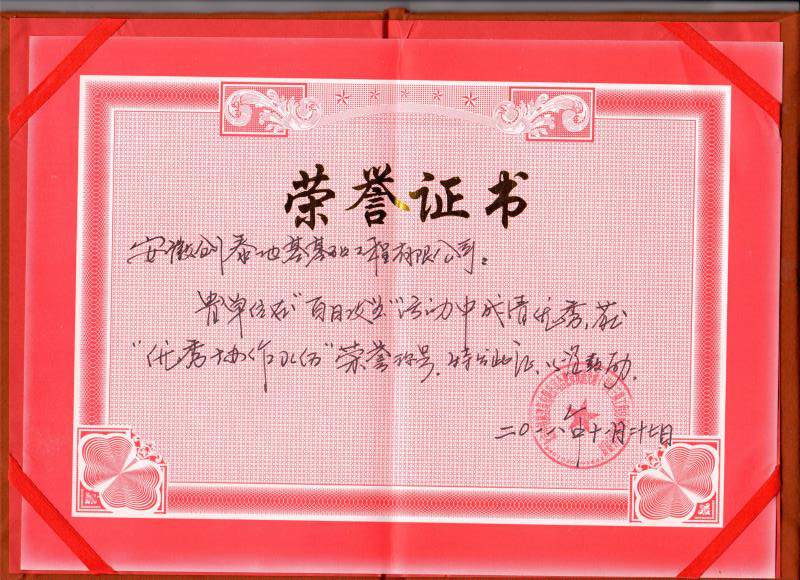 荣誉证书
安徽创泰地基基础工程有限公司：
贵单位在"百日攻坚"活动中成绩优秀，获
"优秀协作队伍"荣誉称号。特发此证，以资鼓励。
二〇一八年十一月二十七日